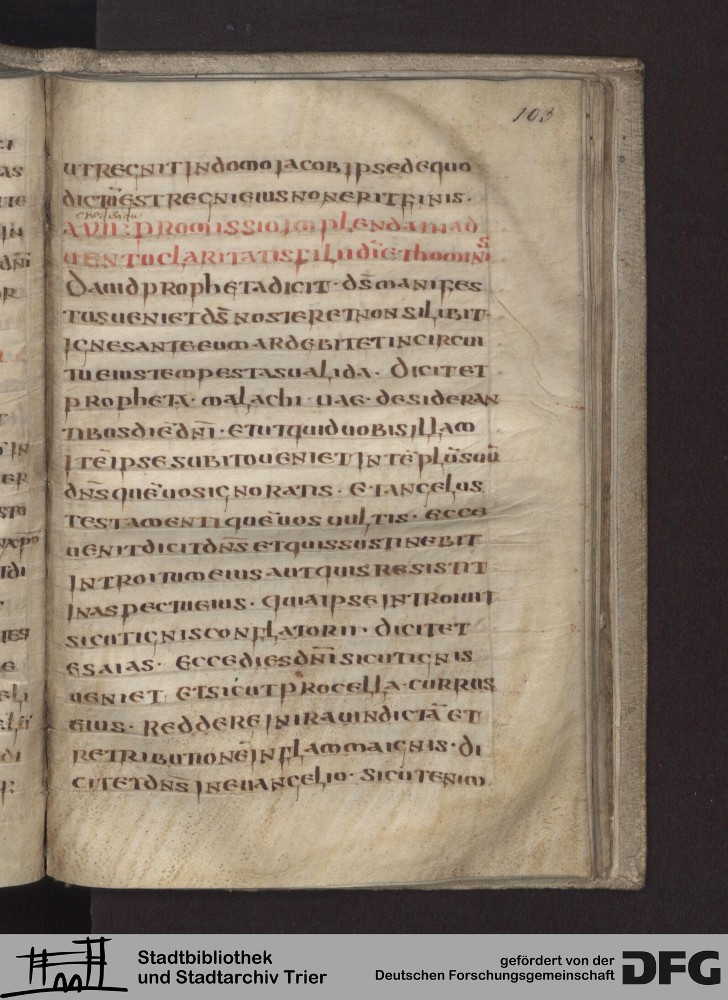 103
utregnit indomo iacob ipsedequo
dictūest regnieiusnoneritfinis·
XVII: promissio implendainad
uentuclaritatisfiliidīethominis
dauidprophetadicit· ds̄manifes
tusuenietds̄nosteretnonsilibit·
ignesanteeumardebitetincircui
tueiustempestasualida· dicitet
propheta· malachi· uae· desideran
tibusdiēdn̄i· etutquiduobisillam
itēipsesubitouenietintēplūsuū
dn̄squēuosignoratis· etangelus
testamentiquēuosuultis· ecce
uenitdicitdn̄s etquissustinebit
introitumeiusautquisresistit
inaspectueius· quiaipseintrouit
sicutignisconflatorii· dicitet
esaias· eccediesdn̄isicutignis
ueniet etsicutprocella·currus
eius· reddereinirauindictāet
retributionēinflammaignis·di
citetdn̄s ineuangelio· sicutenim
Stadtbibliothek
und Stadtarchiv Trier
gefördert von der
Deutschen Forschungsgemeinschaft
DFG